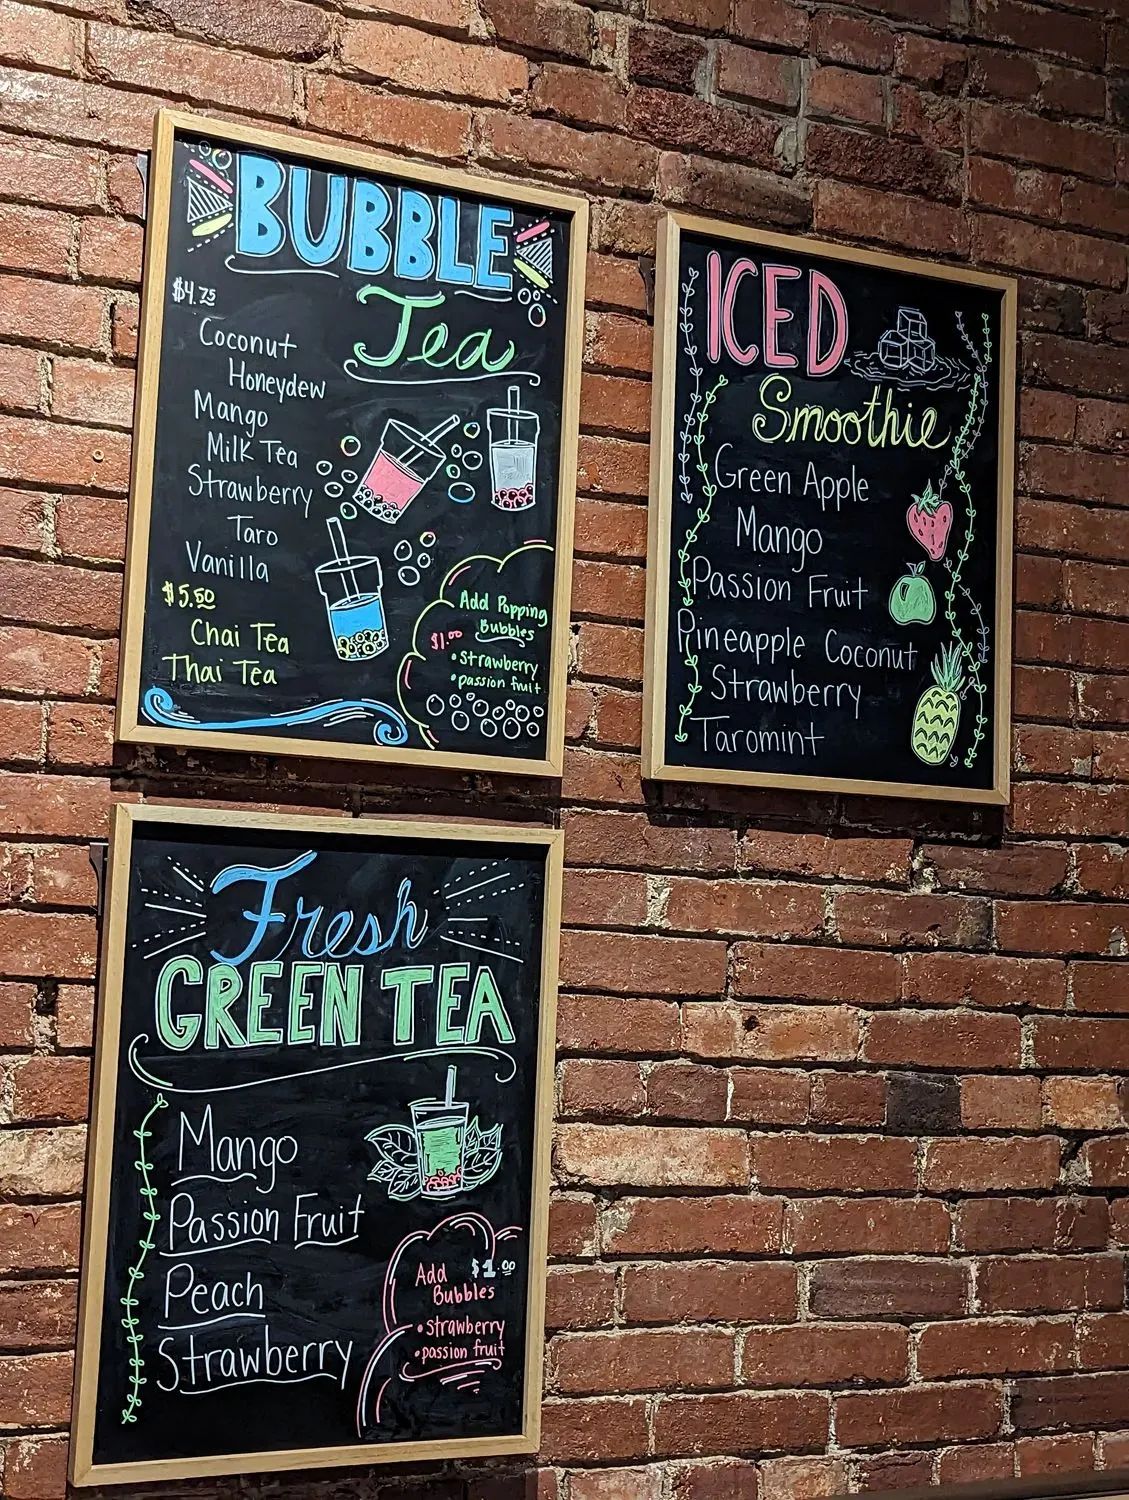 BUBBLE
Tea
$4.75
Coconut
Honeydew
Mango
Milk Tea
Strawberry
Taro
Vanilla
$5.50
Chai Tea
Thai Tea
Add Popping
Bubbles
$1.00
• strawberry
• passion fruit
ICED
Smoothie
Green Apple
Mango
Passion Fruit
Pineapple Coconut
Strawberry
Taromint
Fresh
GREEN TEA
Mango
Passion Fruit
Peach
Strawberry
Add $1.00
Bubbles
• strawberry
• passion fruit